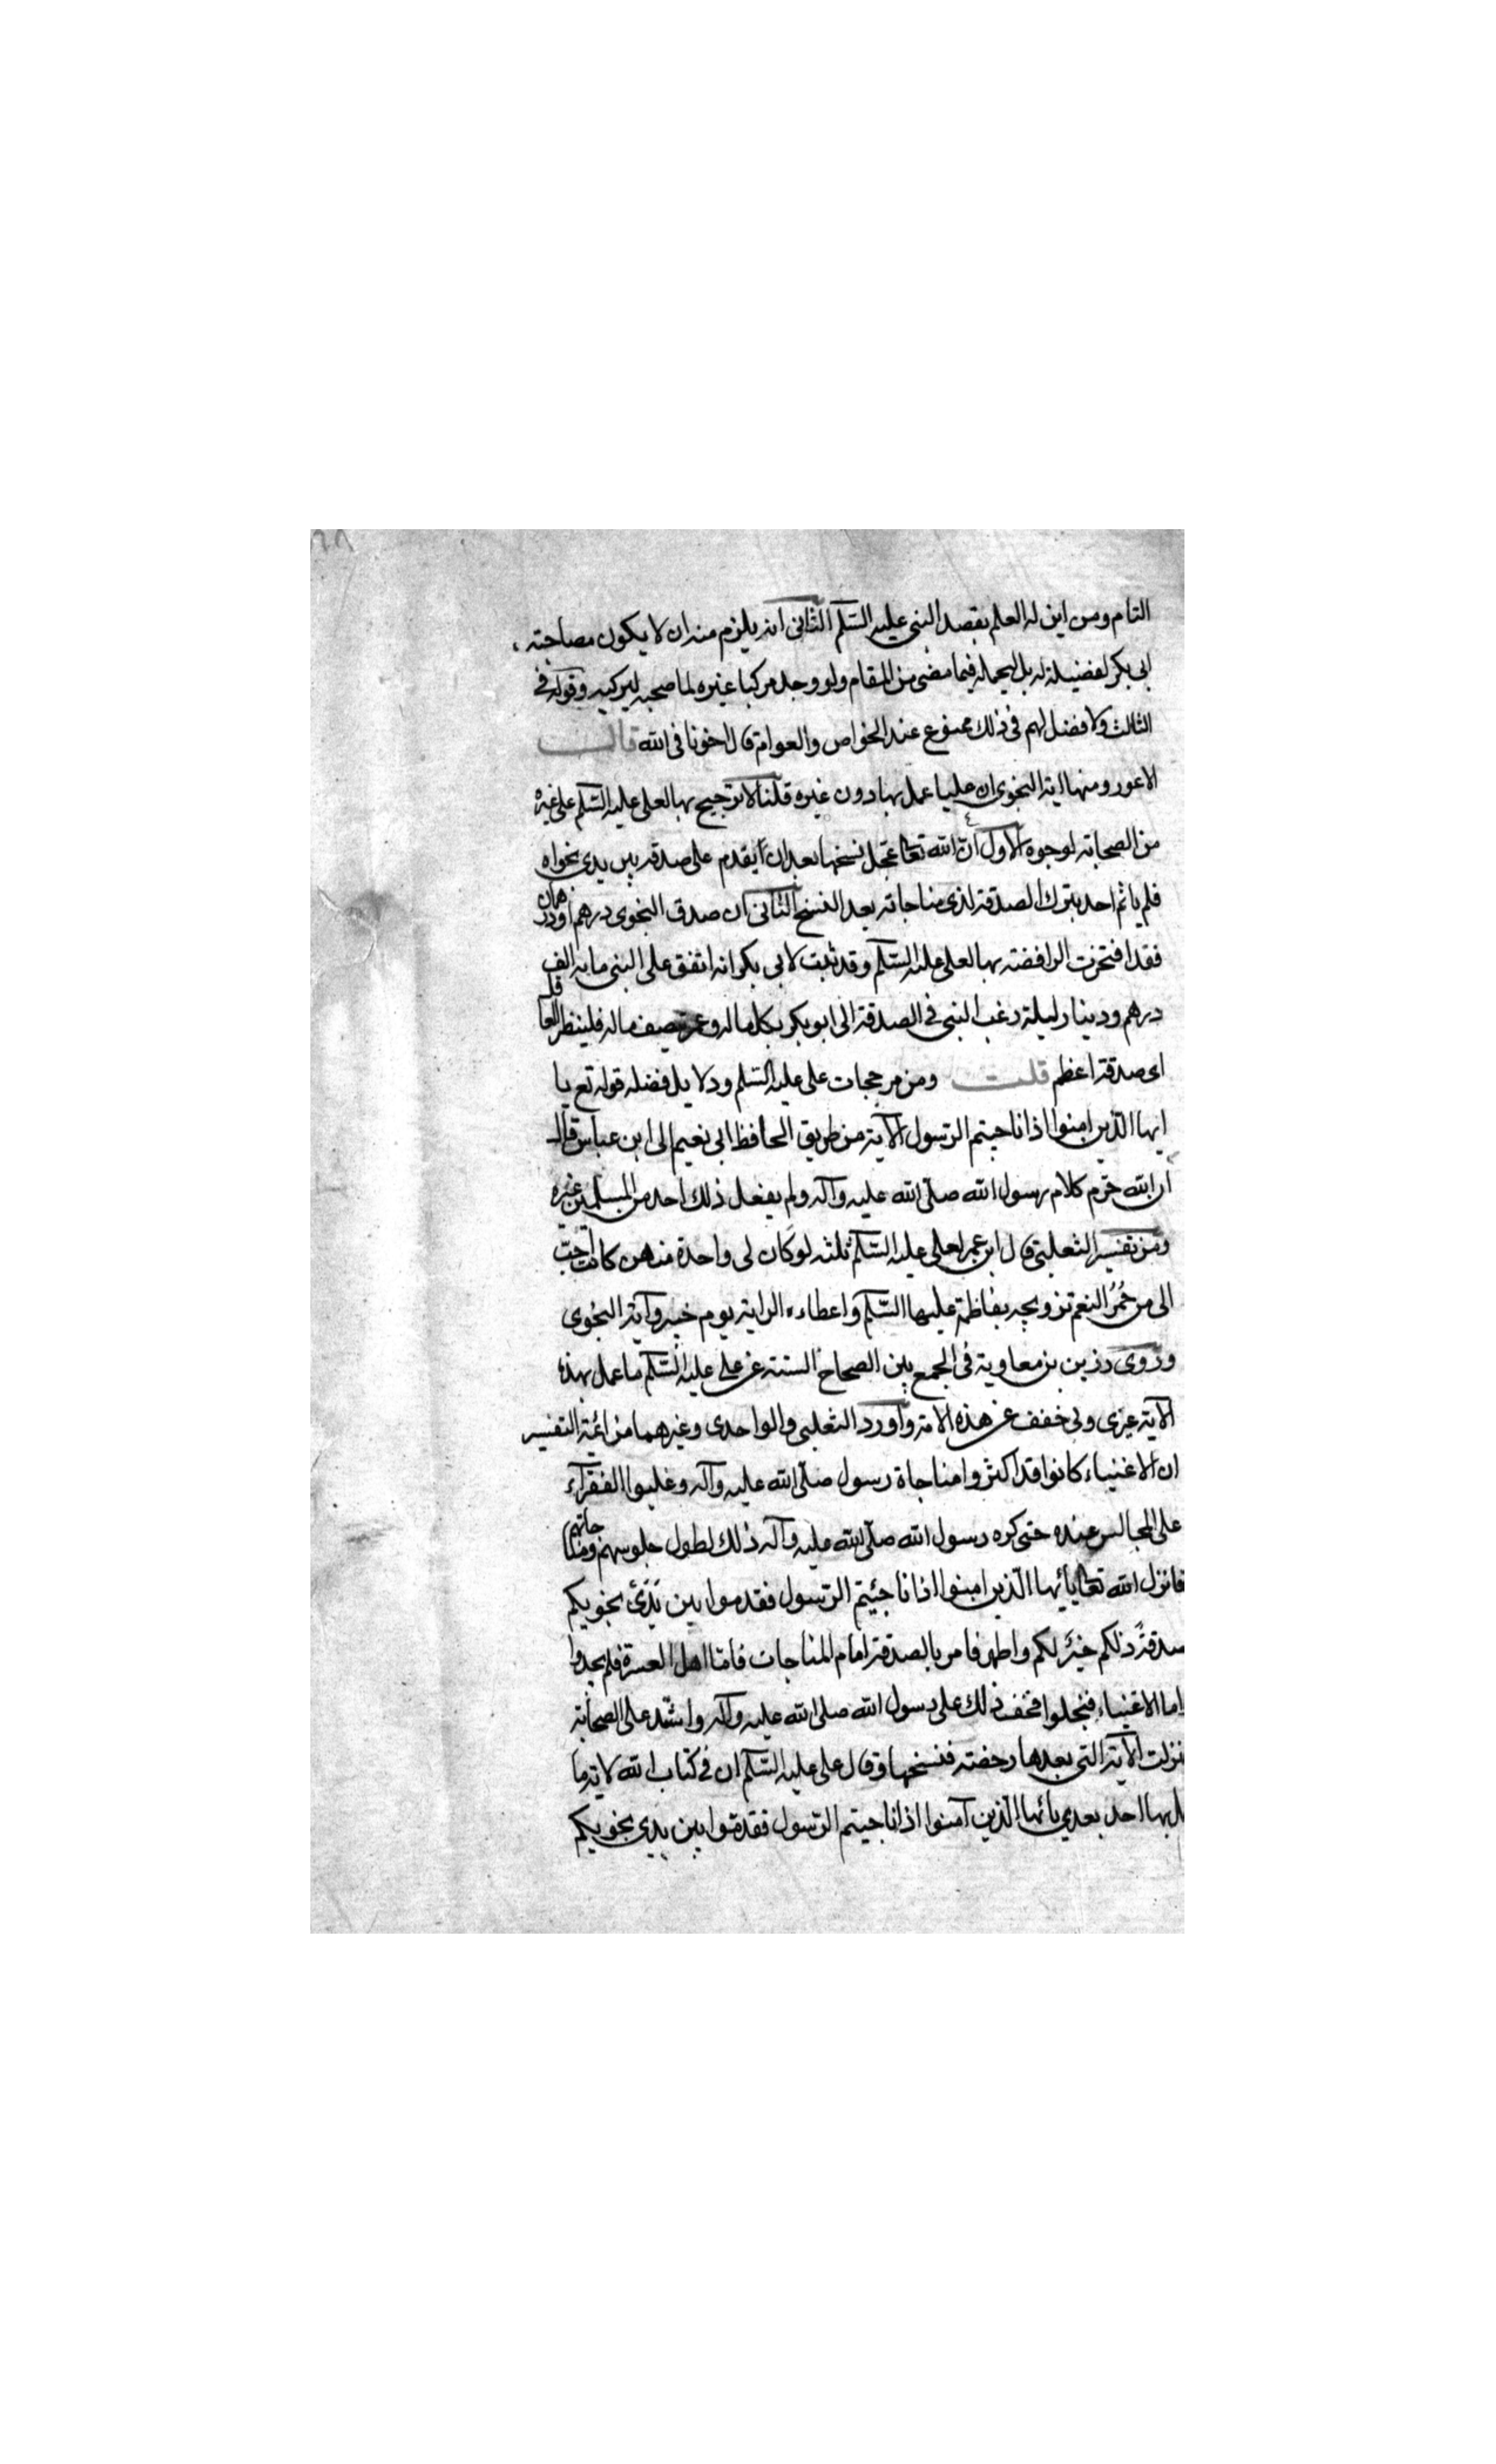 التام ومن اين له العلم بقصد النبى عليه السّلم الثانى انه يلزم منه ان لا يكون مصاحبته
ابى بكر لفضيلة له بل ليحمله فيما مضى من المقام ولو وجد مركبا غيره لما صحبه ليركبه وقوله فى
الثالث ولا فضل لهم فى ذلك ممنوع عند الخواص والعوام قال اخونا فى الله قالـــت
الاعور ومنها اية النجوى ان عليا عمل بها دون غيره قلنا لا ترجيح بها لعلى عليه السّلم على غيره
من الصحابة لوجوه الاول انّ الله تعا عجل نسخها بعد ان يقدم على صدقة بين يدى نجواه
فلم ياثم احد بترك الصدقة لذى مناجاته بعد النسخ الثانى ان صدق النجوى درهم او درهمان
فقد افتخرت الرافضة بها لعلى عليه السّلم وقد ثبت لابى بكر انه انفق على النبى ماية الف
درهم ودينار ليلة رغب النبى فى الصدقة اتى ابو بكر بكل ماله وعمر بنصف ماله فلينظر العاقل
اى صدقة اعظم قلـــت ومن مرجحات على عليه السّلم ودلايل فضله قوله تع يا
ايها الّذين امنوا اذا ناجيتم الرّسول الآية من طريق الحافظ ابى نعيم الى ابن عباس قال
ان الله حرّم كلام رسول الله صلّى الله عليه وآله ولم يفعل ذلك احد من المسلمين غيره
ومن تفسير الثعلبى قال ابن عمر لعلى عليه السّلم ثلثه لو كان لى واحدة منهن كانت احبّ
الى من حُمُر النعم تزويجه بفاطمة عليها السّلم واعطاءه الراية يوم خيبر وآية النجوى
وروى رزين بن معاوية فى الجمع بين الصحاح الستة عن على عليه السّلم ما عمل بهذه
الآية غيرى وبى خفف عن هذه الامة واورد الثعلبى والواحدى وغيرهما من ائمة التفسير
ان الاغنياء كانوا قد اكثروا مناجاة رسول صلّى الله عليه وآله وغلبوا الفقرآء
على المجالس عنده حتى كره رسول الله صلّى الله عليه وآله ذلك لطول جلوسهم ومناجاتهم
فانزل الله تعا يا ايها الّذين امنوا اذا ناجيتم الرّسول فقدموا بين يَدَىْ نجويكم
صدقةً ذلكم خيْر لكم واطهر فامر بالصدقة امام المناجات فامّا اهل العسرة فلم يجدوا
اما الاغنياء فبخلوا فخف ذلك على رسول الله صلى الله عليه وآله واشتد على الصحابة
نزلت الآية التى بعدها رخصة فنسختها وقال على عليه السّلم ان فى كتاب الله لاية ما
مل بها احد بعدي يا ايها الّذين آمنوا اذا ناجيتم الرّسول فقدموا بين يدى نجويكم